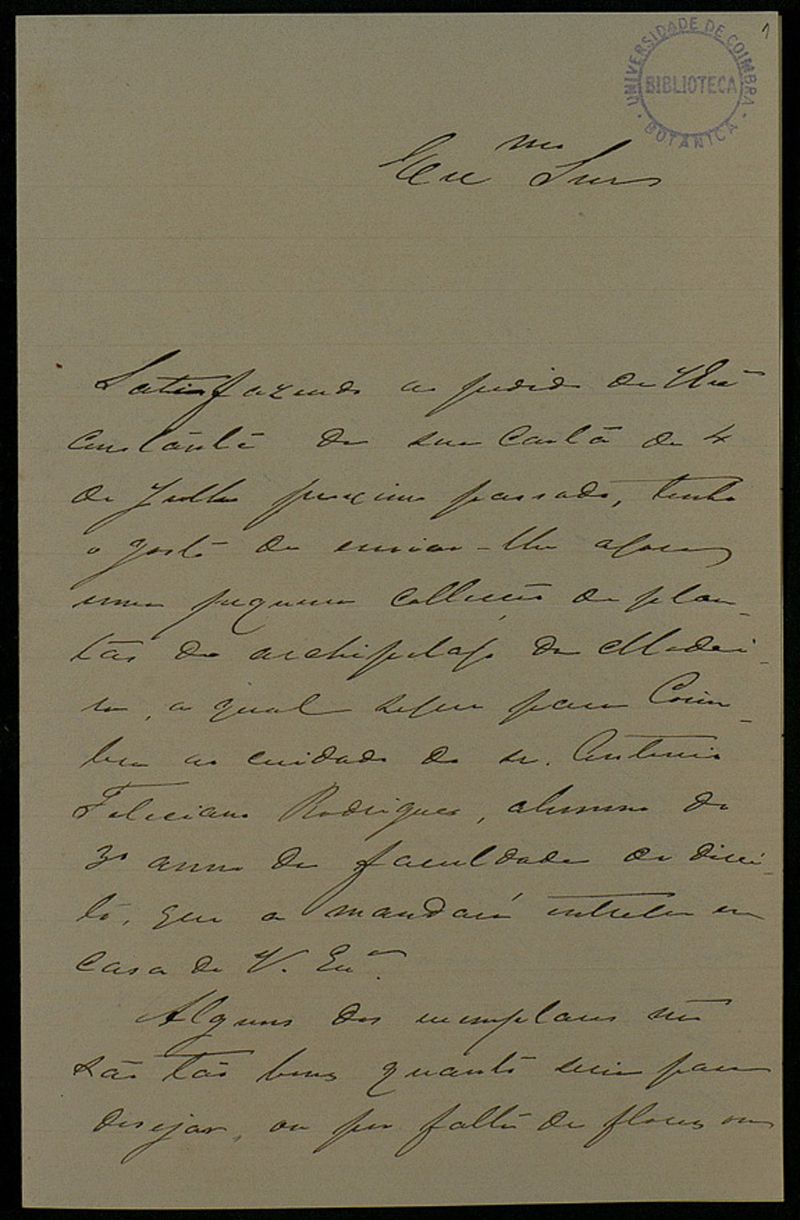 1
UNIVERSIDADE DE COIMBRA
BIBLIOTECA
BOTANICA
Exmo Snr
Satisfazendo ao pedido de V Exa
constante da sua carta de 4
de Julho proximo passado, tenho
o gosto de enviar-lhe agora
uma pequena collecção de plan-
tas do archipelago da Madei-
ra, a qual segue para Coim-
bra ao cuidado do sr. Antonio
Feliciano Rodrigues, alumno do
3º anno da faculdade de direi-
to, que a mandará entregar em
casa de V. Exa.
Alguns dos exemplares não
são tão bons quanto seria para
desejar, ou por falta de flores ou